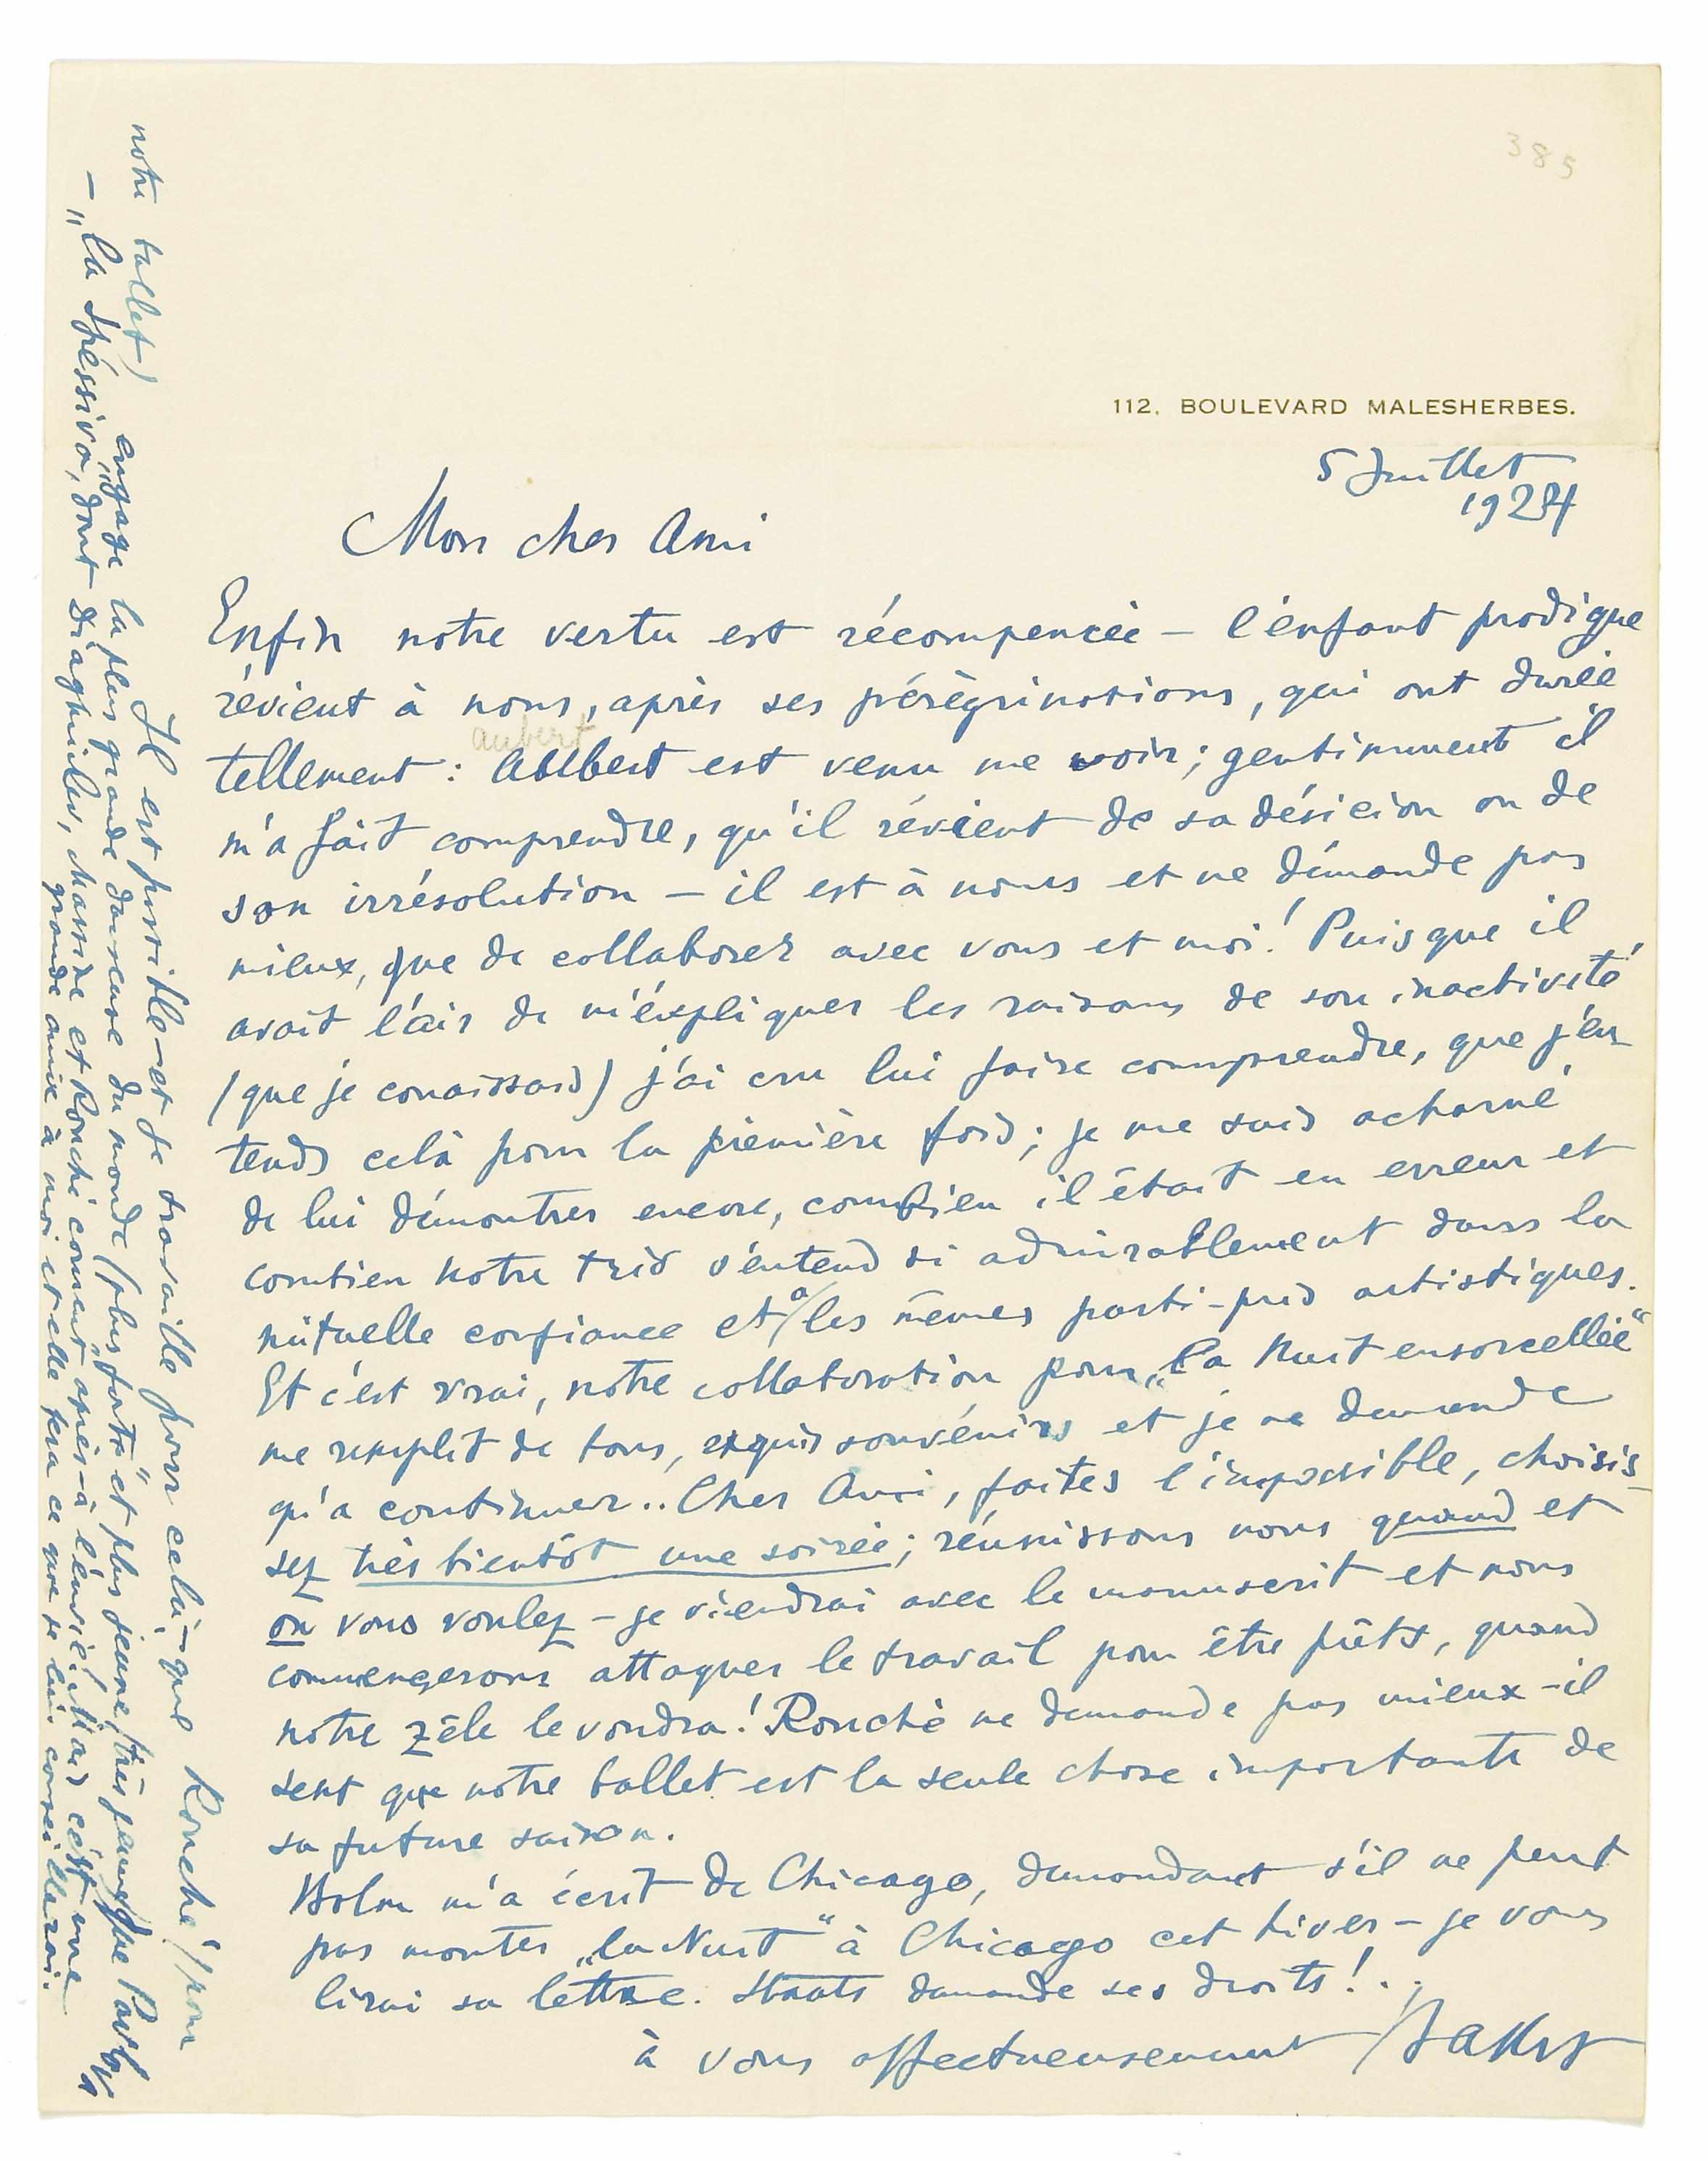 385
112, BOULEVARD MALESHERBES.
5 Juillet
1924
Mon cher Ami
Enfin notre vertu est récompencée – l'énfant prodigue
révient à nous, après ses pérégrinations, qui ont durée
aubert
tellement : Aubert est venu me voir; gentimment il
m'a fait comprendre, qu'il révient de sa désicion ou de
son irrésolution – il est à nous et ne démande pas
mieux, que de collaborer avec vous et moi! Puisque il
avait l'air de m'éxpliquer les raisons de son inactivité
(que je conaissais) j'ai cru lui faire comprendre, que j'en
tends celà pour la première fois; je me suis acharné
de lui démontrer encore, combien il était en erreur et
combien notre trio s'entend si admirablement dans la
mutuelle confiance et a/les mêmes parti-pris artistiques.
Et c'est vrai, notre collaboration pour „La Nuit ensorcellée“
me remplit de bons, exquis souvénirs et je ne demande
qu'a continuer.. Cher Ami, faites l'impossible, choisis-
sez très bientôt une soirée; réunissons nous quand et
ou vous voulez – je viendrai avec le manuscrit et nous
commençerons attaquer le travail pour être prêts, quand
notre zèle le voudra! Rouché ne demande pas mieux – il
sent que notre ballet est la seule chose importante de
sa future saison.
Bolm m'a écrit de Chicago, demandant s'il ne peut
pas monter „la Nuit“ à Chicago cet hiver – je vous
lirai sa lettre. Staats demande ses droits!..
à vous affectueusement Bakst
Il est possible – et je travaille pour celà, – que Rouché (pour
notre ballet) engage la plus grande danseuse du monde (plus forte et plus jeune, très jeune) que Pavlova
– „la Spéssiva, dont Diaghilev, Massine et Rouché courent après – à l'envie! Mais c'est une
grande amie à moi et elle fera ce que je lui conseillerai.